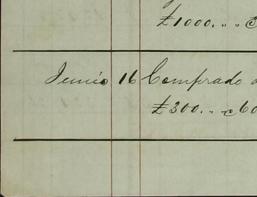 £1000. „ „
Junio 16 Comprado
£300. „ c 60